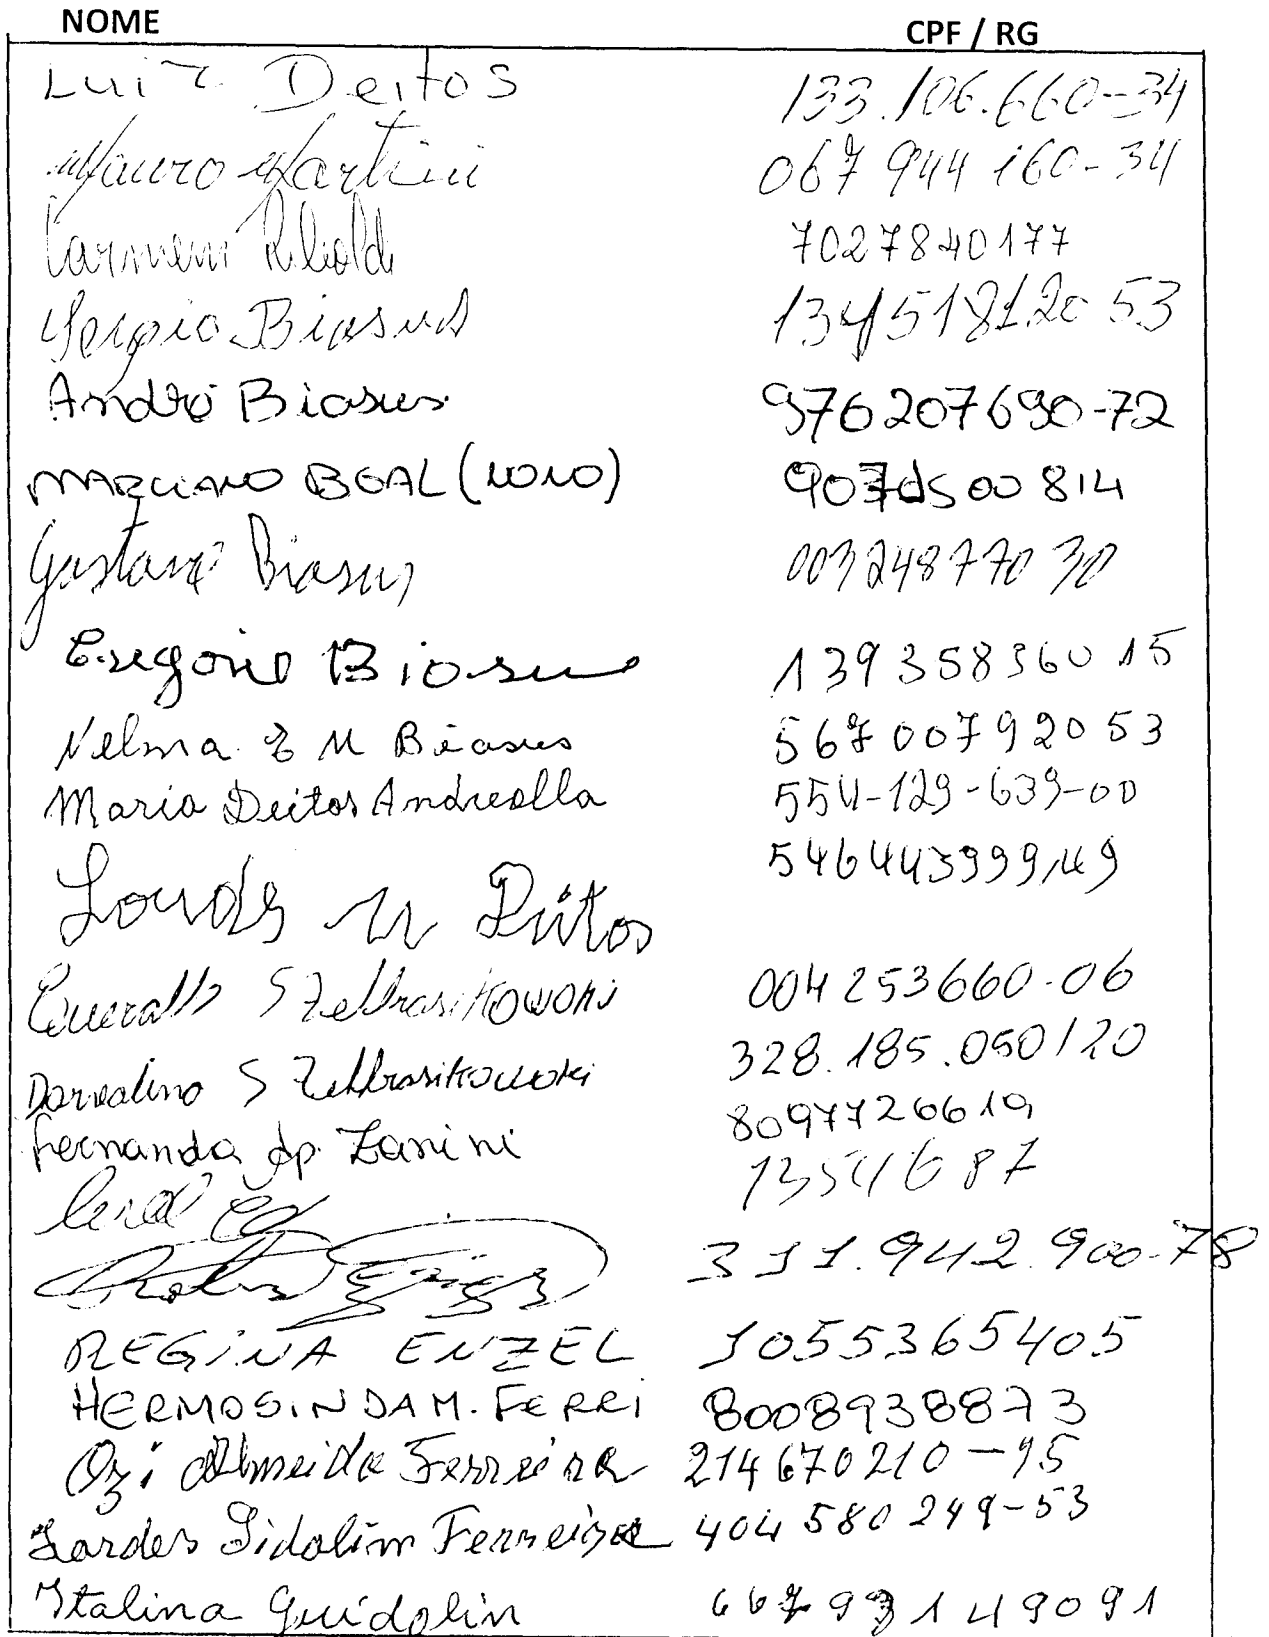 NOME CPF / RG
Luiz Deitos 133.106.660-34
Mauro Martini 067 944 160-34
Carmem 7027840177
Sergio Biasus 134518120 53
André Biasus 976207690-72
MARCIANO BOAL (NONO) 00814
Gustavo Biasus 003248770 30
Gregorio Biasus 139 358360 15
Nelma E M Biasus 567 007 920 53
Maria Deitos Andreolla 554-129-639-00
546443999,49
Lourdes M Deitos
004 253660-06
328.185.050/20
Dorvalino S
8097726619
Fernanda Ap. Zanini
13541687
311.942.900-78
REGINA ENZEL 1055365405
HERMOSINDA M. FERRI 8008938873
Ozi Almeida Ferreira 214670210-15
Lurdes Gidolim Ferreira 404 580 249-53
Italina Guidolin